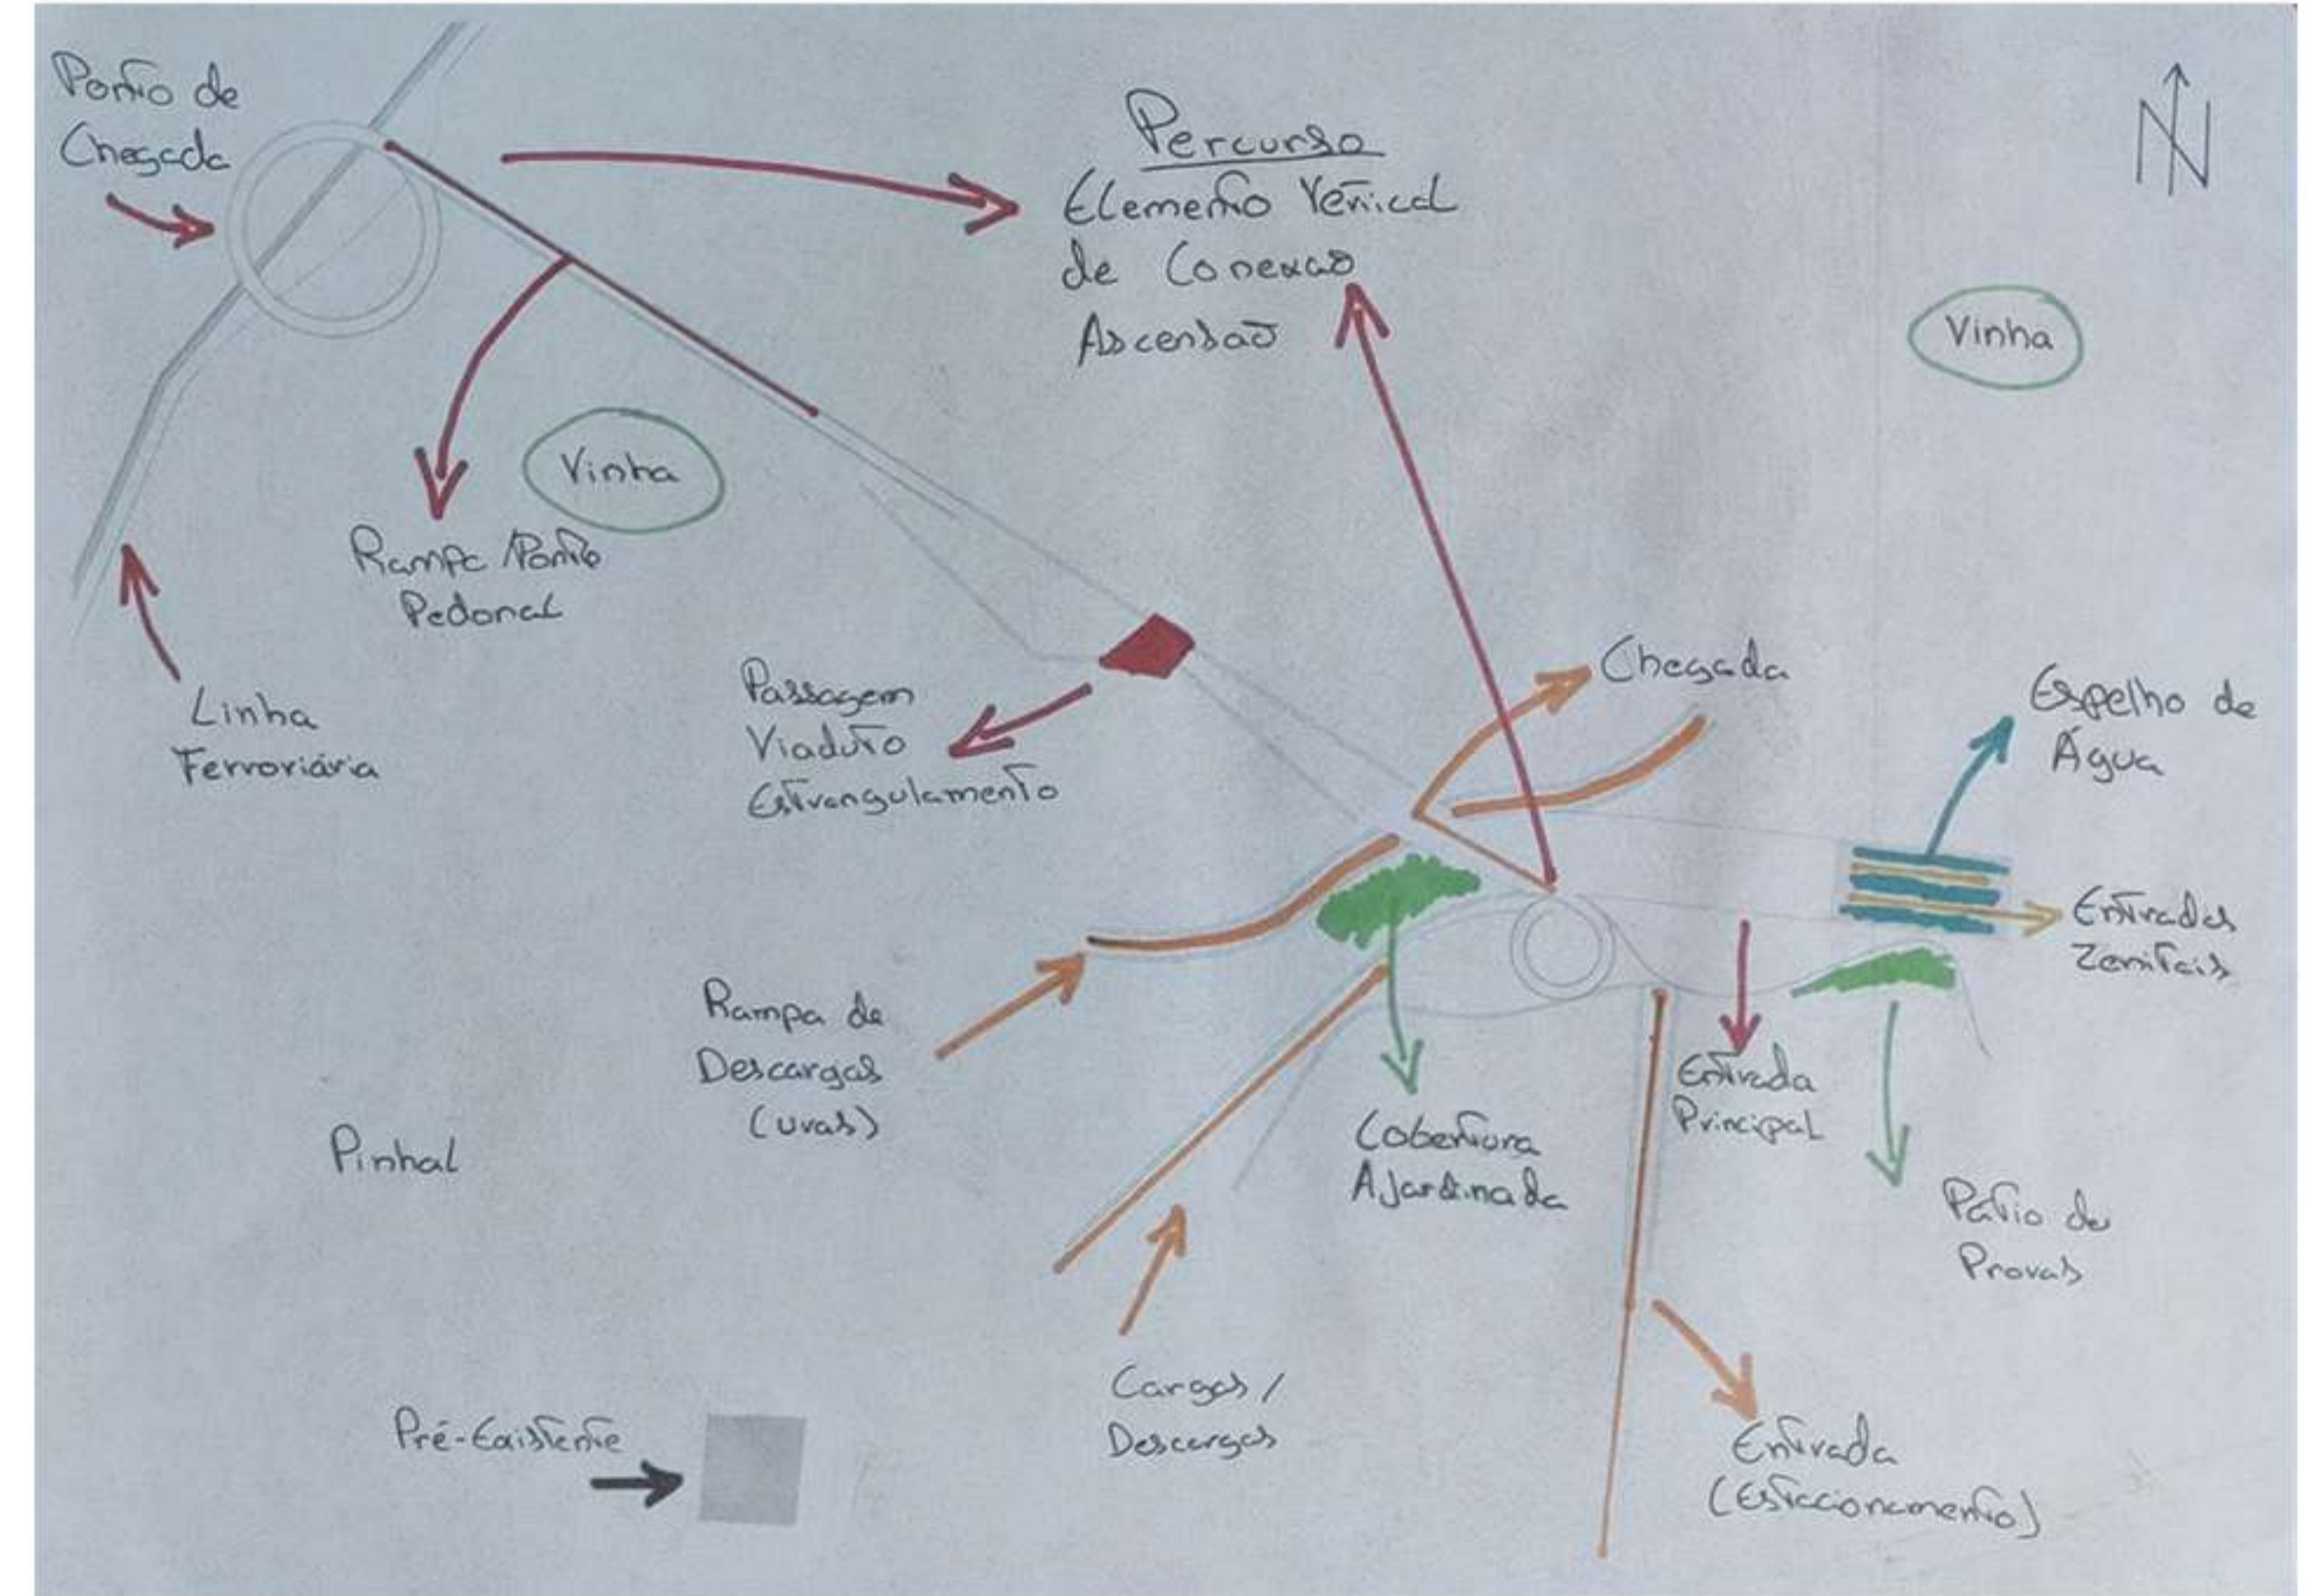 Ponto de
Chegada
Percurso
Elemento Vertical
de Conexão
Ascensão
N
Vinha
Vinha
Rampa / Ponte
Pedonal
Linha
Ferroviária
Passagem
Viaduto
Estrangulamento
Chegada
Espelho de
Água
Entradas
Zenitais
Rampa de
Descargas
(uvas)
Entrada
Principal
Cobertura
Ajardinada
Pátio de
Provas
Pinhal
Cargas /
Descargas
Pré-Existente
Entrada
(Estacionamento)